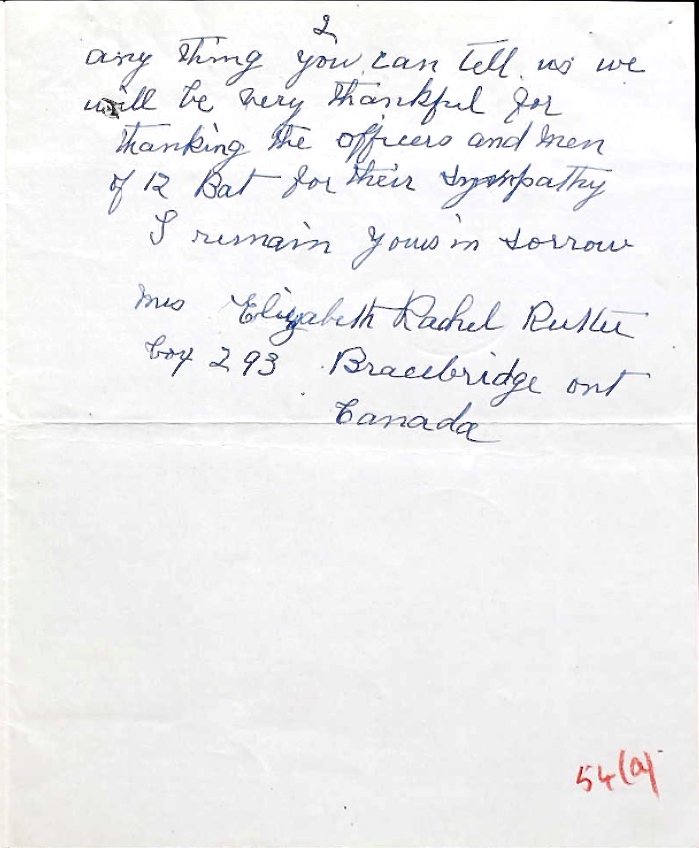 2
any thing you can tell us we
will be very thankful for
thanking the officers and men
of 12 Bat for their sympathy
I remain yours in sorrow
Mrs Elizabeth Rachel Rutter
box 293 Bracebridge ont
Canada
54(a)